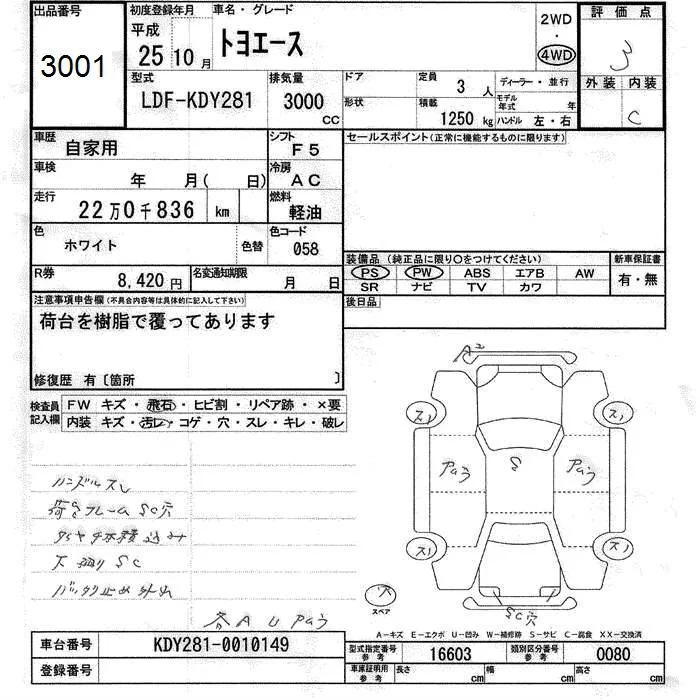 出品番号
3001
初度登録年月
平成
25 10 月
車名・グレード
トヨエース
2WD
・
4WD
評価点
3
外装 内装
C
型式
LDF-KDY281
排気量
3000
CC
ドア
形状
定員
3 人
積載
1250 kg
ディーラー・並行
モデル年式 年
ハンドル 左・右
車歴
自家用
シフト
F5
車検
年 月( 日)
冷房
AC
走行
22 万 0 千 836 km
燃料
軽油
色
ホワイト
色替
色コード
058
R券
8,420 円
名変通知期限
月 日
セールスポイント(正常に機能するものに限ります)
装備品(純正品に限り○をつけてください)
新車保証書
PS PW ABS エアB AW
SR ナビ TV カワ
有・無
後日品
注意事項申告欄(不具合内容等は具体的に記入して下さい)
荷台を樹脂で覆ってあります
修復歴 有〔箇所 〕
検査員
記入欄
FW キズ・飛石・ヒビ割・リペア跡・×要
内装 キズ・汚レ・コゲ・穴・スレ・キレ・破レ
ハンドルスレ
荷台フレーム SC穴
下廻り SC
バックリ止め外れ
各 A U Paう
A2
スノ
スノ
Paう
S
Paう
スノ
スノ
SC穴
スペア
A-キズ E-エクボ U-凹み W-補修跡 S-サビ C-腐食 XX-交換済
車台番号
KDY281-0010149
登録番号
型式指定番号
参考
16603
類別区分番号
参考
0080
車庫証明用
参考
長さ cm
幅 cm
高さ cm